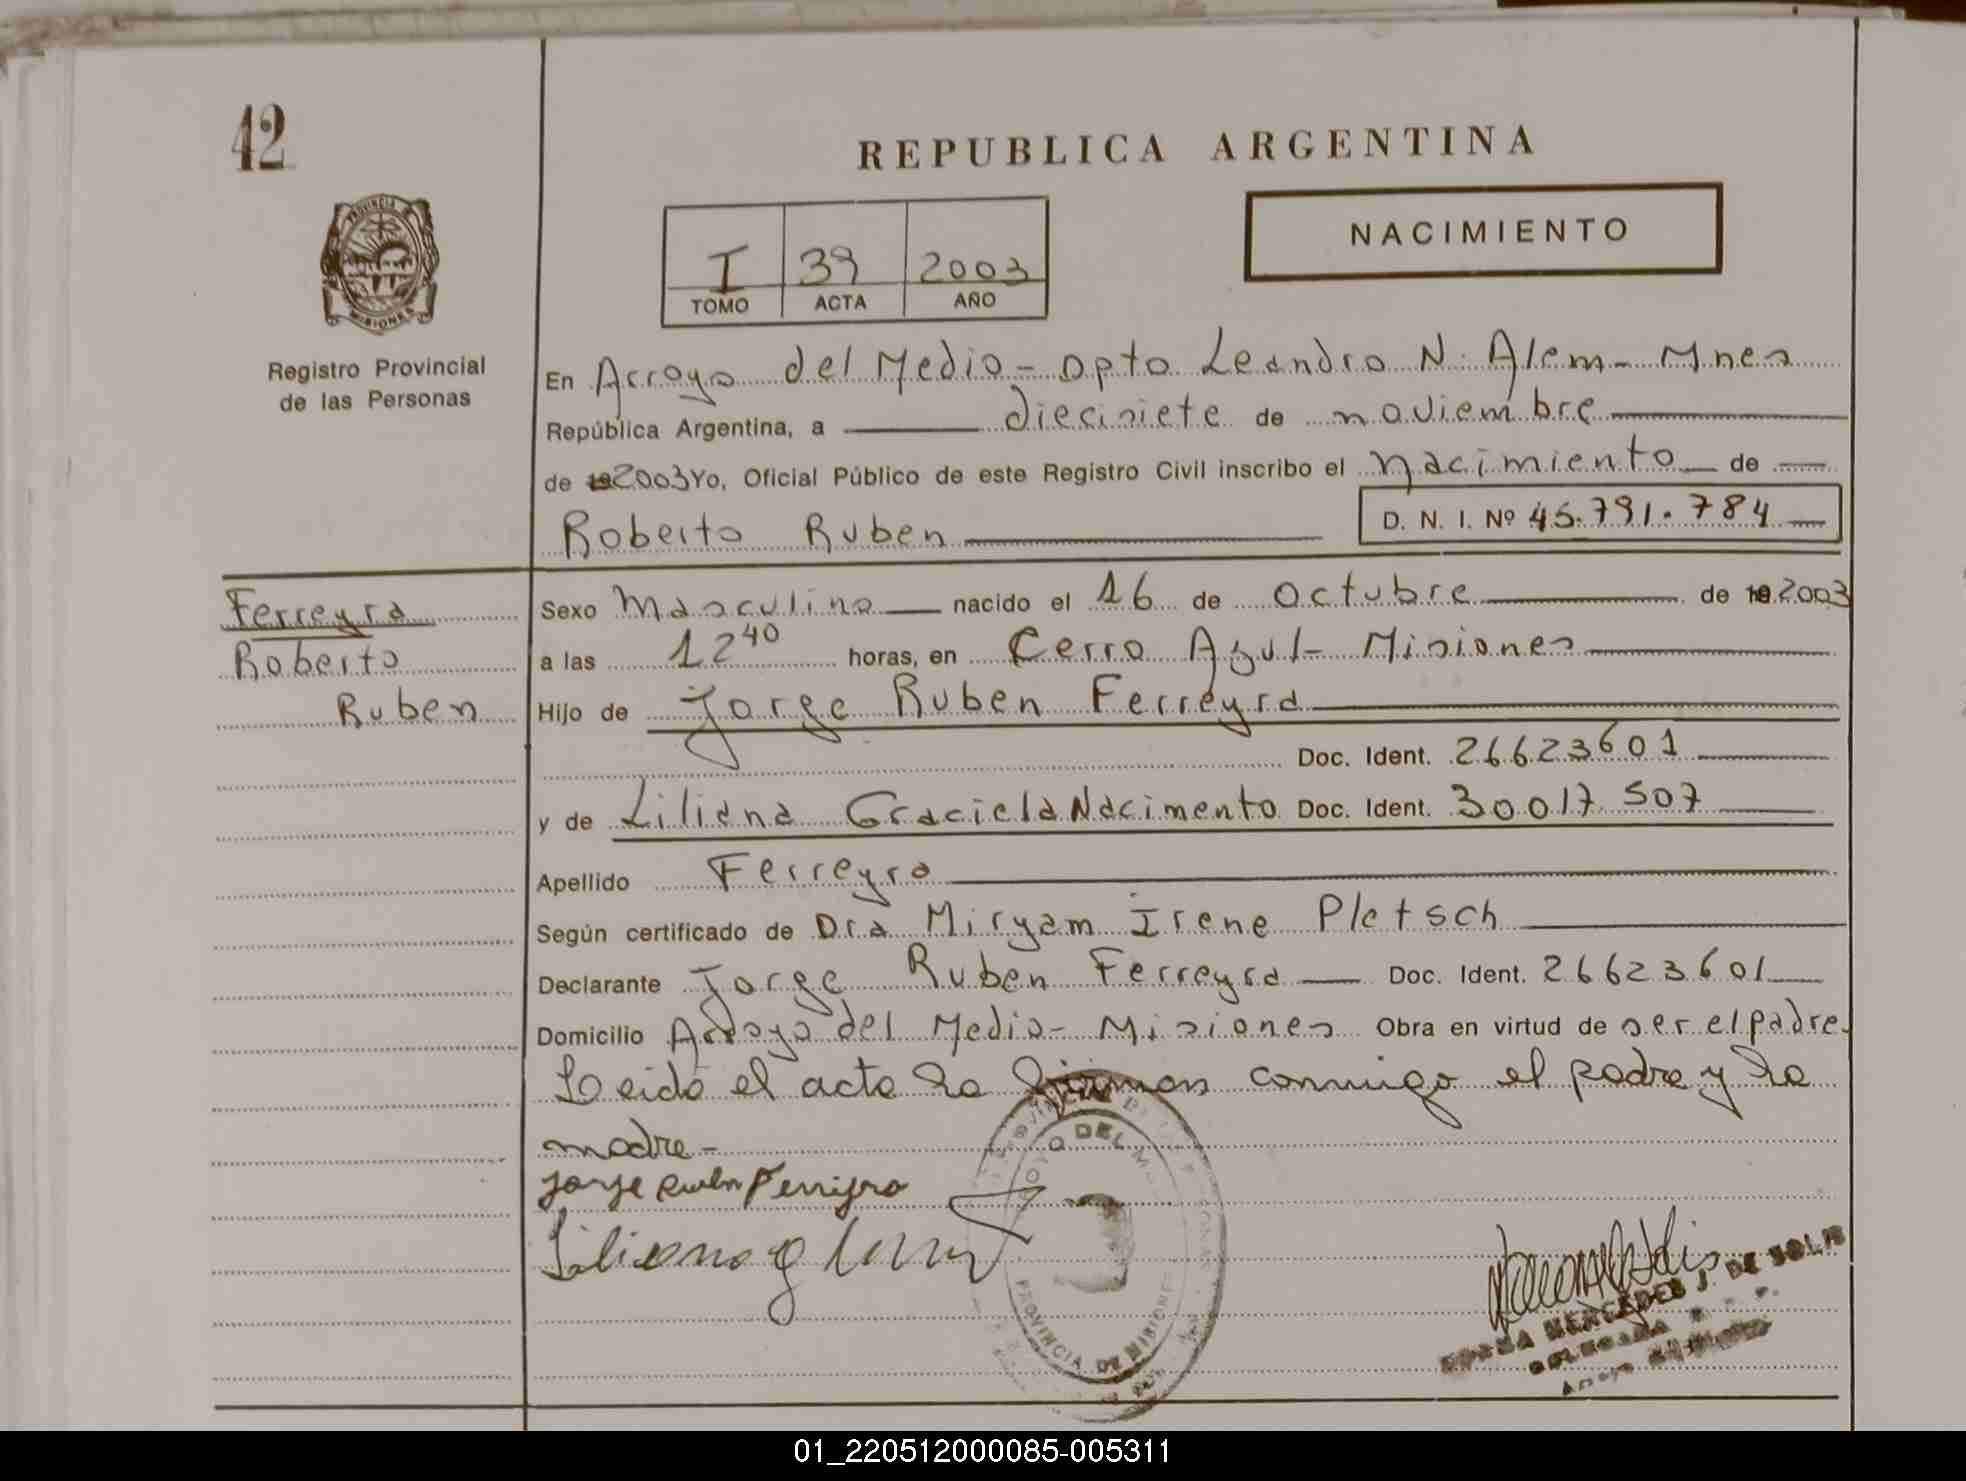 42
REPUBLICA ARGENTINA
NACIMIENTO
I 39 2003
TOMO ACTA AÑO
PROVINCIA
MISIONES
Registro Provincial
de las Personas
En Arroyo del Medio - Dpto Leandro N. Alem - Mnes
República Argentina, a diecisiete de noviembre
de 192003 Yo, Oficial Público de este Registro Civil inscribo el nacimiento de
Roberto Ruben D. N. I. Nº 45.791.784
Ferreyra
Roberto
Ruben
Sexo Masculino nacido el 16 de Octubre de 192003
a las 12 40 horas, en Cerro Azul - Misiones
Hijo de Jorge Ruben Ferreyra
Doc. Ident. 26623601
y de Liliana Graciela Nacimento Doc. Ident. 30017507
Apellido Ferreyra
Según certificado de Dra Miryam Irene Pletsch
Declarante Jorge Ruben Ferreyra Doc. Ident. 26623601
Domicilio Arroyo del Medio - Misiones Obra en virtud de ser el padre.
Leida el acta la firman conmigo el padre y la
madre -
Jorge Ruben Ferreyra
Liliana G
DEL
PROVINCIA DE MISIONES
MERCEDES J. DE SOLIS
DELEGADA
Arroyo
01_220512000085-005311